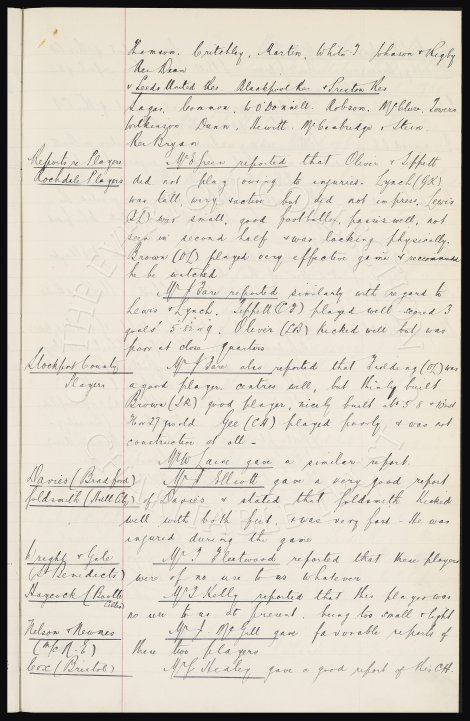 Thomson. Critchley, Martin, White T Johnson & Rigby
Res Dean
v Leeds United Res Blackpool Res & Preston Res
Sagar, Common, W O'Donnell. Robson. McClure, Towers
Wilkinson Dunn, Hewitt. McCambridge & Stein.
Res Bryan
Reports re Players
Mr E Green reported that Oliver & Tippett
Rochdale Players
did not play owing to injuries. Lynch (GK)
was tall, very active but did not impress. Lewis
(IL) was small, good footballer, passes well, not
seen in second half & was lacking physically.
Brown (OL) played very effective game & recommended
he be watched
Mr J Fare reported similarly with regard to
Lewis & Lynch. Tippett (CF) played well scored 3
goals Oliver (LB) kicked well but was
poor at close quarters
Stockport County
Mr J Fare also reported that Fielding (OL) was
Players
a good player, centres well, but thinly built
Brown (IR) good player, nicely built abt 5.8 &
27 yrs old Gee (CH) played poorly, & was not
constructive at all -
Mr W Laine gave a similar report.
Davies (Bradford)
Mr A Elliott gave a very good report
Goldsmith (Hull City)
of Davies & stated that Goldsmith kicked
well with both feet, & was very fast - He was
injured during the game
Wright & Gale
Mr T Fleetwood reported that these players
(St Benedicts)
were of no use to us whatever
Haycock (Bootle
Mr E Kelly reported that this player was
Celtic)
no use to us at present, being too small & light
Nelson & Newnes
Mr J McGill gave favorable reports of
(McC N. E)
these two players
Cox (Bristol)
Mr G Healey gave a good report of this CH.